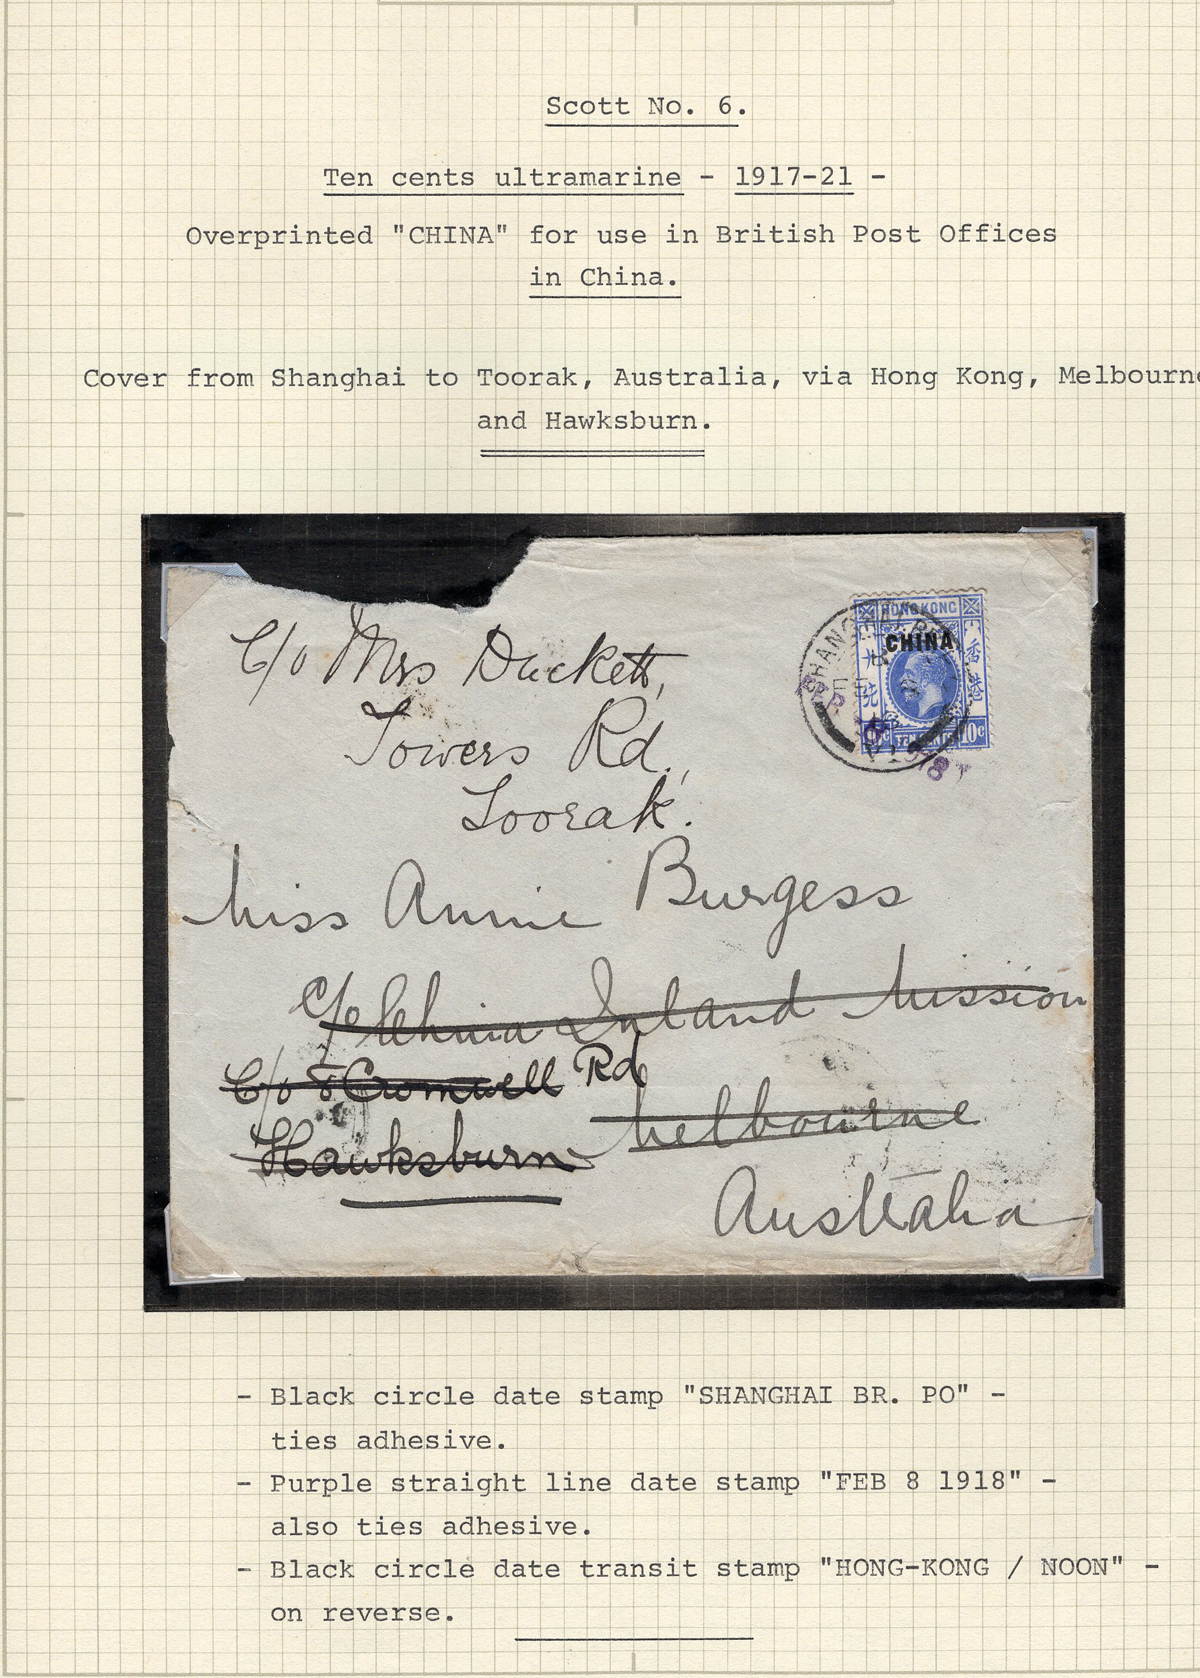 Scott No. 6.
Ten cents ultramarine - 1917-21 -
Overprinted "CHINA" for use in British Post Offices
in China.
Cover from Shanghai to Toorak, Australia, via Hong Kong, Melbourne
and Hawksburn.
HONG KONG
CHINA
香港
TEN CENTS 10c
SHANGHAI BR.
C/o Mrs Duckett,
Towers Rd.,
Toorak.
Miss Annie Burgess
C/o China Inland Mission
C/o 8 Cromwell Rd
Hawksburn Melbourne
Australia
- Black circle date stamp "SHANGHAI BR. PO" -
ties adhesive.
- Purple straight line date stamp "FEB 8 1918" -
also ties adhesive.
- Black circle date transit stamp "HONG-KONG / NOON" -
on reverse.